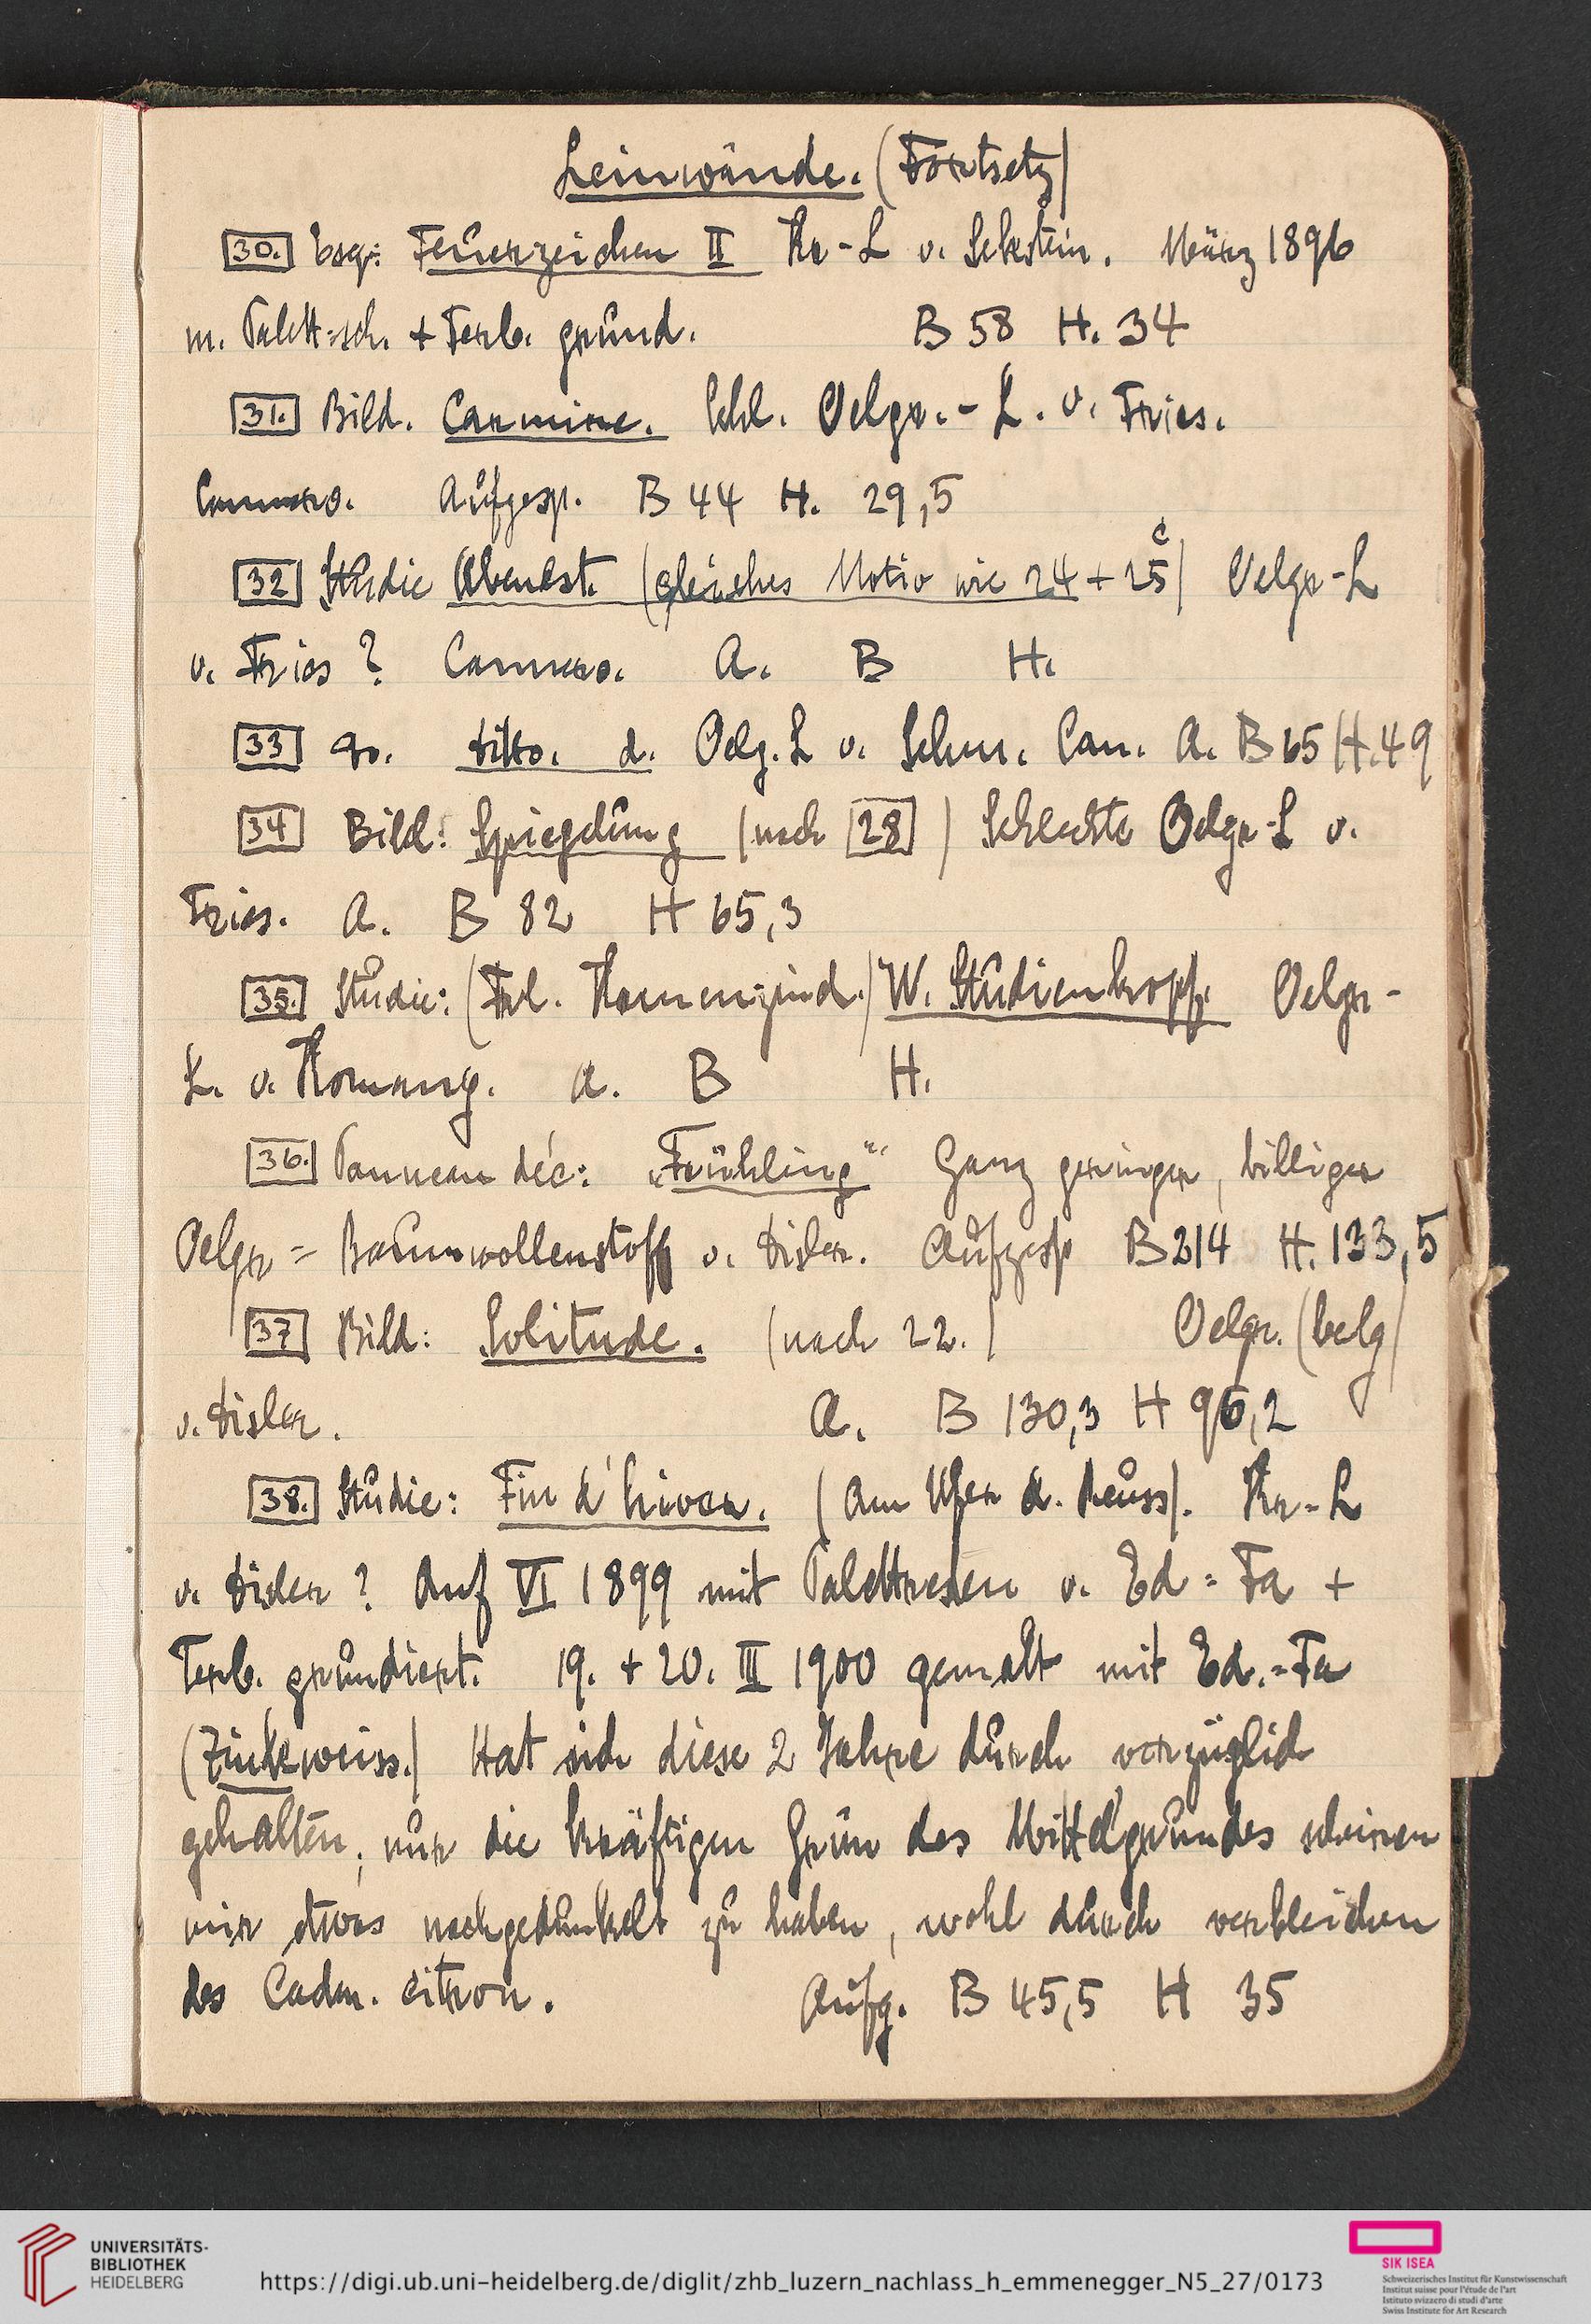 Leinwände. (Fortsetz)
30. bsg: Feuerzeichen II Kr-L v. Sebastin. März 1896
m. Palett-sch. + Terb. grund. B 58 H. 34
31. Bild. Carmine. Schl. Oelgr.-L. v. Fries.
Cennero. Aufgesp. B 44 H. 29,5
32 Studie Abendst. (gleiches Motiv wie 24 + 25 c) Oelgr-L
v. Fries ? Cennero. A. B H.
33 do. ditto. d. Oelg. L v. Schm. Cen. A. B 65 H. 49
34 Bild: Spiegelung (nach 28) Schlechte Oelgr-L v.
Fries. A. B 82 H 65,3
35. Studie: (Frl. Kamenzind.) W. Studienkopf. Oelgr-
L. v. A. B H.
36. Panneau déc: „Frühling" Ganz geringer, billiger
Oelgr = Baumwollenstoff v. Disler. Aufgesp B 214 H. 133,5
37 Bild: Solitude. (nach 22.) Oelgr. (belg)
v. Disler. A. B 130,3 H 96,2
38. Studie: Fin d'hiver. (Am Ufer d. Reuss). Kr-L
v. Disler ? Auf VI 1899 mit Palettresten v. Ed = Fa +
Terb. grundiert. 19. + 20. III 1900 gemalt mit Ed.=Fa
(Zinkweiss.) Hat sich diese 2 Jahre durch vorzüglich
gehalten; nur die kräftigen Grün des Mittelgrundes scheinen
mir etwas nachgedunkelt zu haben, wohl durch verbleichen
des Cadm. citron. Aufg. B 45,5 H 35
UNIVERSITÄTS-
BIBLIOTHEK
HEIDELBERG
https://digi.ub.uni-heidelberg.de/diglit/zhb_luzern_nachlass_h_emmenegger_N5_27/0173
SIK ISEA
Schweizerisches Institut für Kunstwissenschaft
Institut suisse pour l'étude de l'art
Istituto svizzero di studi d'arte
Swiss Institute for Art Research